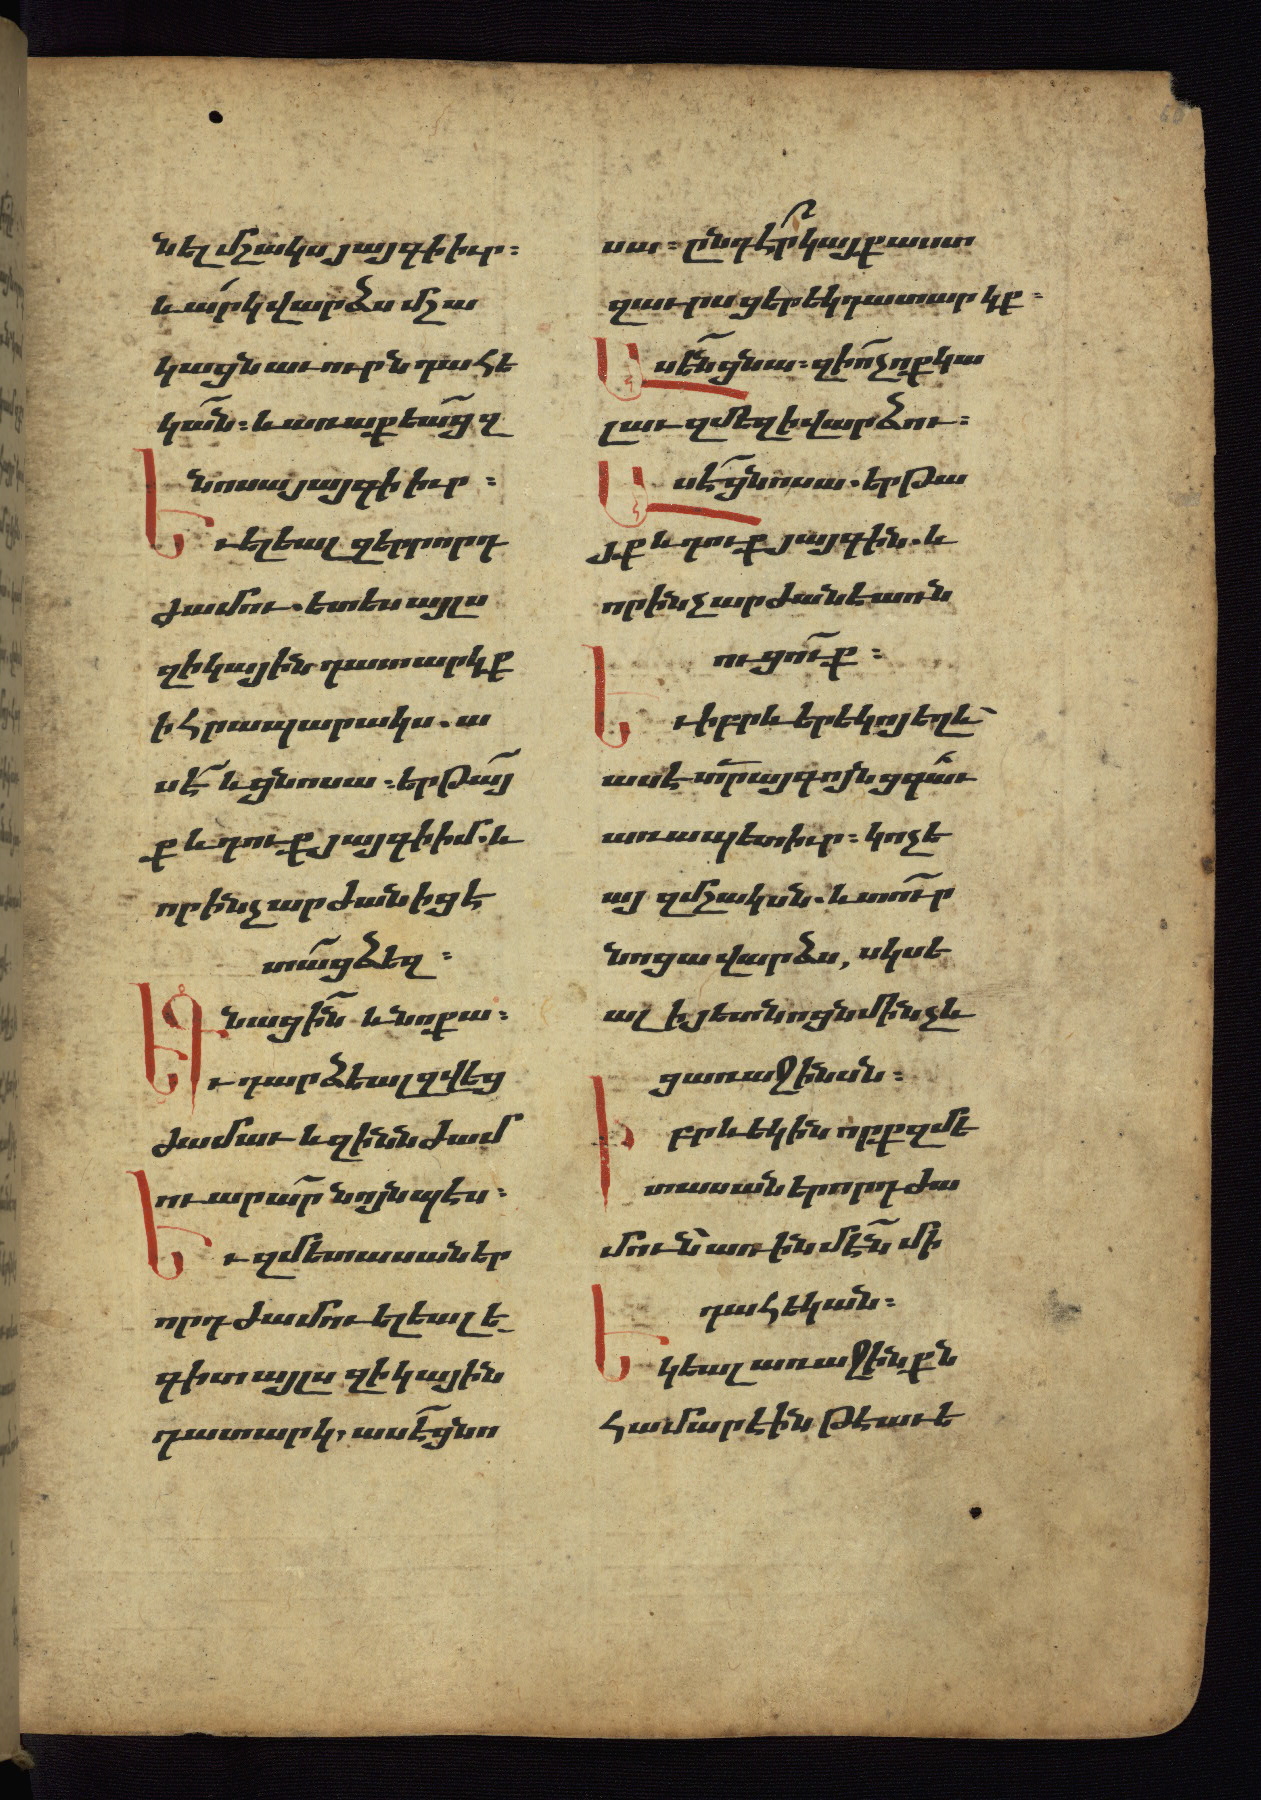 նել մշակս յայգի իւր ։
և արկ վարձս մշա
կացն աւուրն դահե
կան ։ և առաքեաց զ
նոսա յայգի իւր ։
Եւ ելեալ զերրորդ
ժամու . ետես այլս
զի կային դատարկք
ի հրապարակս . ա
սէ և ցնոսա ։ երթայ
ք և դուք յայգի իմ . և
որ ինչ արժան իցէ
տաց ձեզ ։
Եւ գնացին և նոքա ։
ւ դարձեալ զվեց
ժամաւ և զինն ժամ
ու արար նոյնպէս ։
Եւ զմետասաներ
որդ ժամու ելեալ ե
գիտ այլս զի կային
դատարկ, ասէ ցնո
սա ։ ընդէր կայք աստ
զաւրս ցերեկ դատարկք ։
Ասեն ցնա ։ զի ոչ ոք կա
լաւ զմեզ ի վարձու ։
Ասէ ցնոսա . երթա
յք և դուք յայգին . և
որ ինչ արժան է առն
ուցուք ։
Եւ իբրև երեկոյ եղև
ասէ տր այգոյն ցգաւ
առապետ իւր ։ կոչե
այ զմշակսն . և տուր
նոցա վարձս, սկսե
ալ ի յետնոցն մինչև
ցառաջինսն ։
Իբրև եկին որք զմե
տասաներորդ ժա
մուն առին մէն մի
դահեկան ։
Եկեալ առաջինքն
համարէին թէ աւե